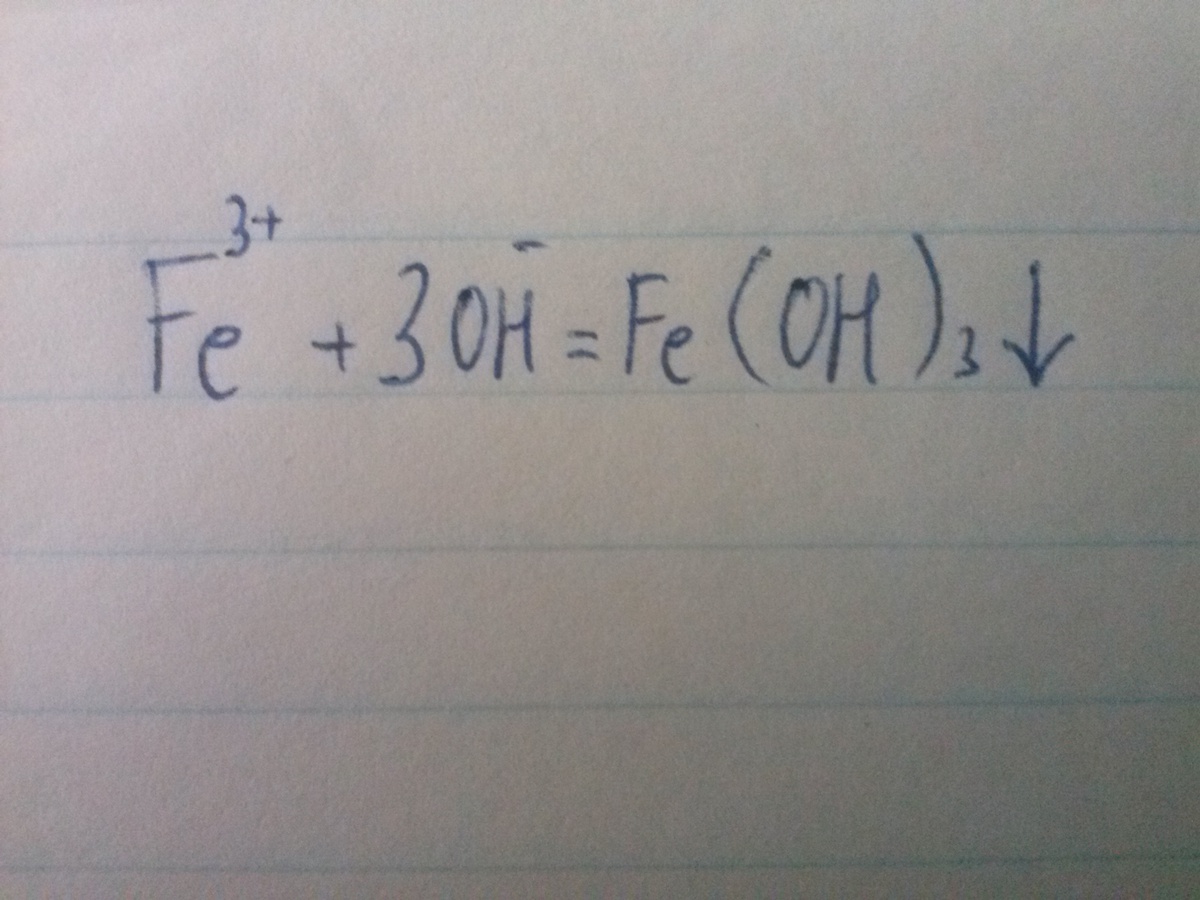 Fe³⁺ + 3OH⁻ = Fe(OH)₃↓